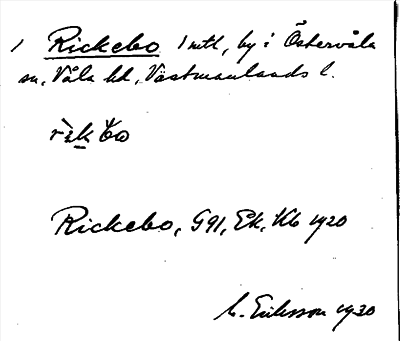 1 Rickebo 1 mtl, by i Östervåla
sn, Våla hd, Västmanlands l.
Rickebo, G91, Ek. Kb 1920
Eriksson 1930